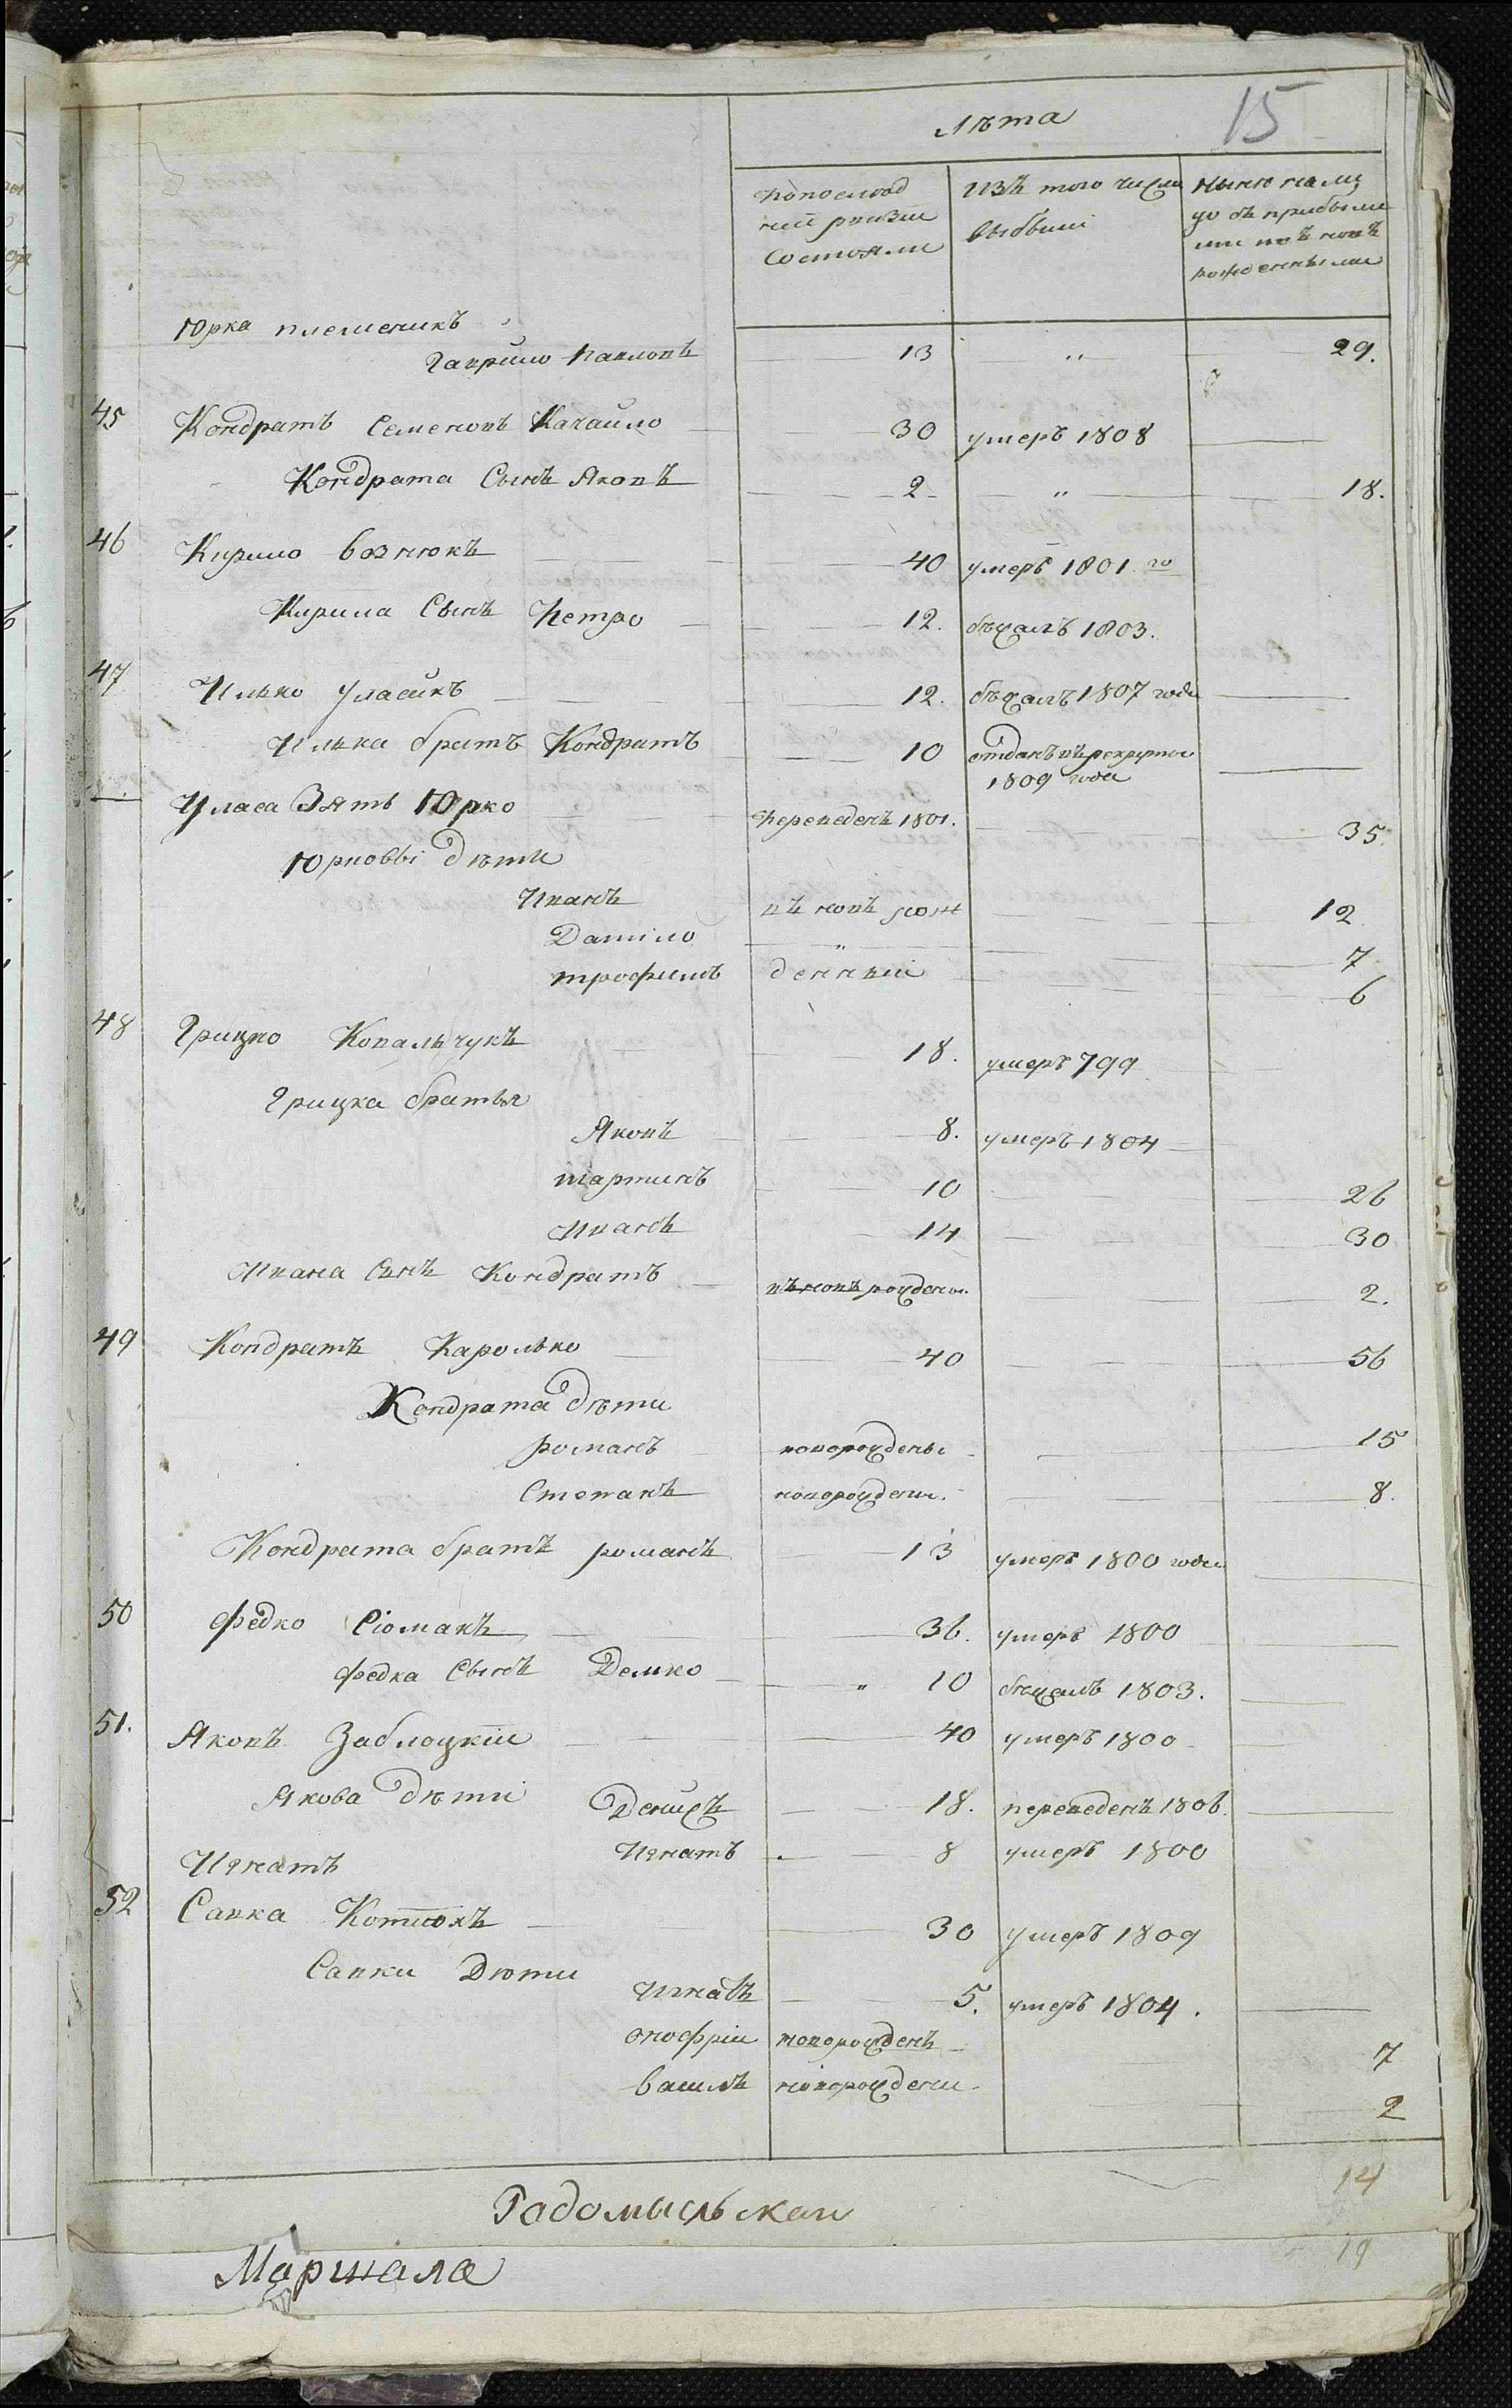 15
Лѣта
попослѣд
ней ревизіи
состояли
изъ того числа
выбыли
Юрка племеникъ
Гаврило Павловъ 13 „ 29.
45 Кондратъ Семеновъ Качайло 30 умеръ 1808
Кондрата Сынъ Яковъ 2 „ 18.
46 Кирило Вознюкъ 40 умеръ 1801 го
Кирила Сынъ Петро 12. бѣжалъ 1803.
47 Илько Уласикъ 12. бѣжалъ 1807 года
Илька братъ Кондратъ 10 отданъ въ рекруты
1809 года
Уласа Зять Юрко переведенъ 1801. 35.
Юрковы дѣти
Иванъ въ новъ рож 12
Данило „ 7
трофимъ денныи 6
48 Грицко Ковальчукъ 18. умеръ 799
Грицка братья
Яковъ 8. умеръ 1804
мартинъ 10 26
Иванъ 14 30
Ивана Сынъ Кондратъ въ новъ рожденъ 2.
49 Кондратъ Каролько 40 56
Кондрата дѣти
романъ новорожденъ 15
Степанъ новорожденъ. 8.
Кондрата братъ романъ 13 умеръ 1800 года
50 Федко Сіомакъ 36. умеръ 1800
Федка Сынъ Демко „ 10 бѣжалъ 1803.
51. Яковъ Заблоцкіи 40 умеръ 1800
Якова дѣти Денисъ 18. переведенъ 1806.
Игнатъ Игнатъ 8 умеръ 1800
52 Савка Котлюкъ 30 умеръ 1809
Савки Дѣти
Игнатъ 5. умеръ 1804.
онофріи новорожденъ 7
Василь новорожденъ 2
14
Радомыслскаи
19
Маршала